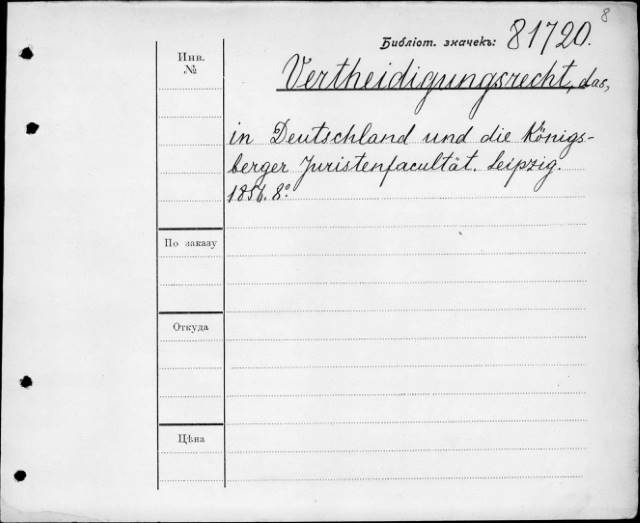 8
Библіот. значекъ: 81720.
Инв. №
Vertheidigungsrecht, das,
in Deutschland und die Königs-
berger Juristenfacultät. Leipzig.
8º.
По заказу
Откуда
Цѣна